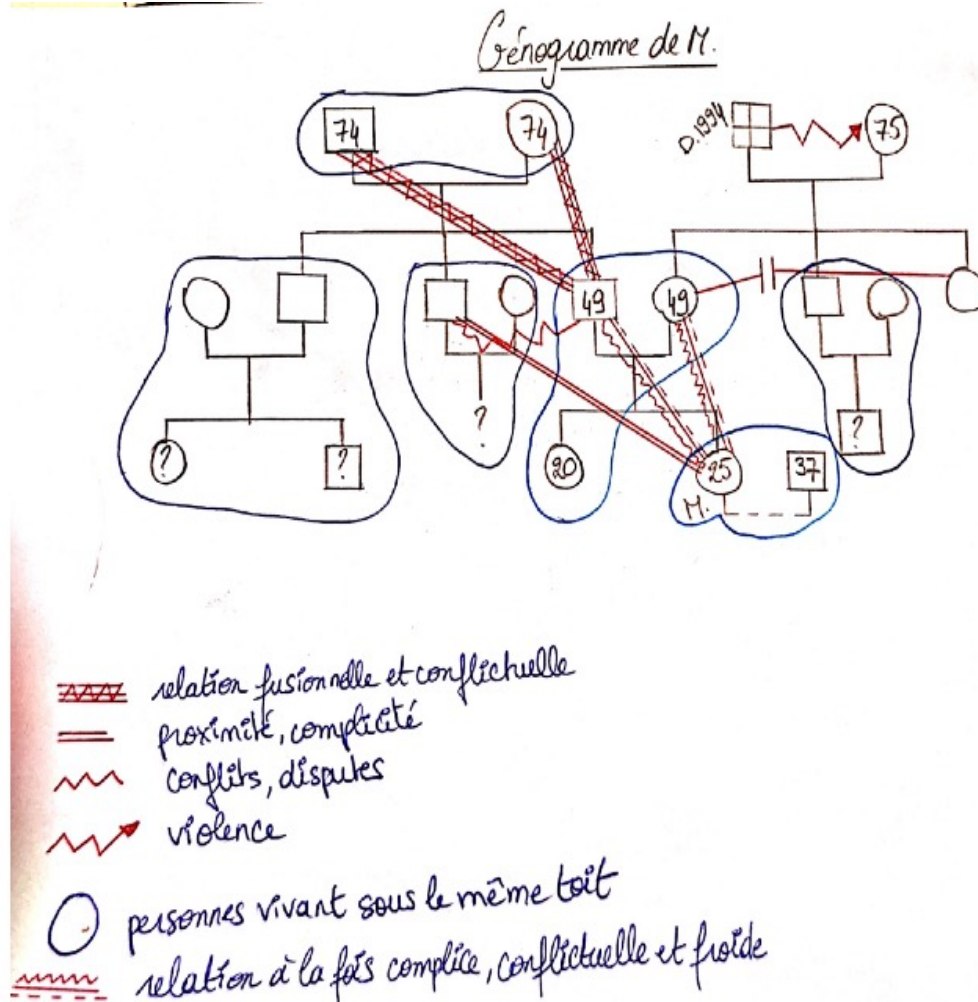 Génogramme de M.
74
74
D.1994
75
49
49
?
?
?
20
25
37
?
M.
relation fusionnelle et conflictuelle
proximité, complicité
conflits, disputes
violence
personnes vivant sous le même toit
relation à la fois complice, conflictuelle et froide